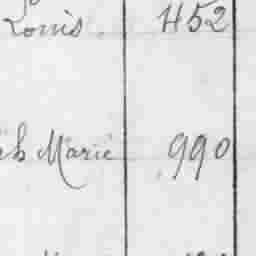 Louis 452
Marie 990